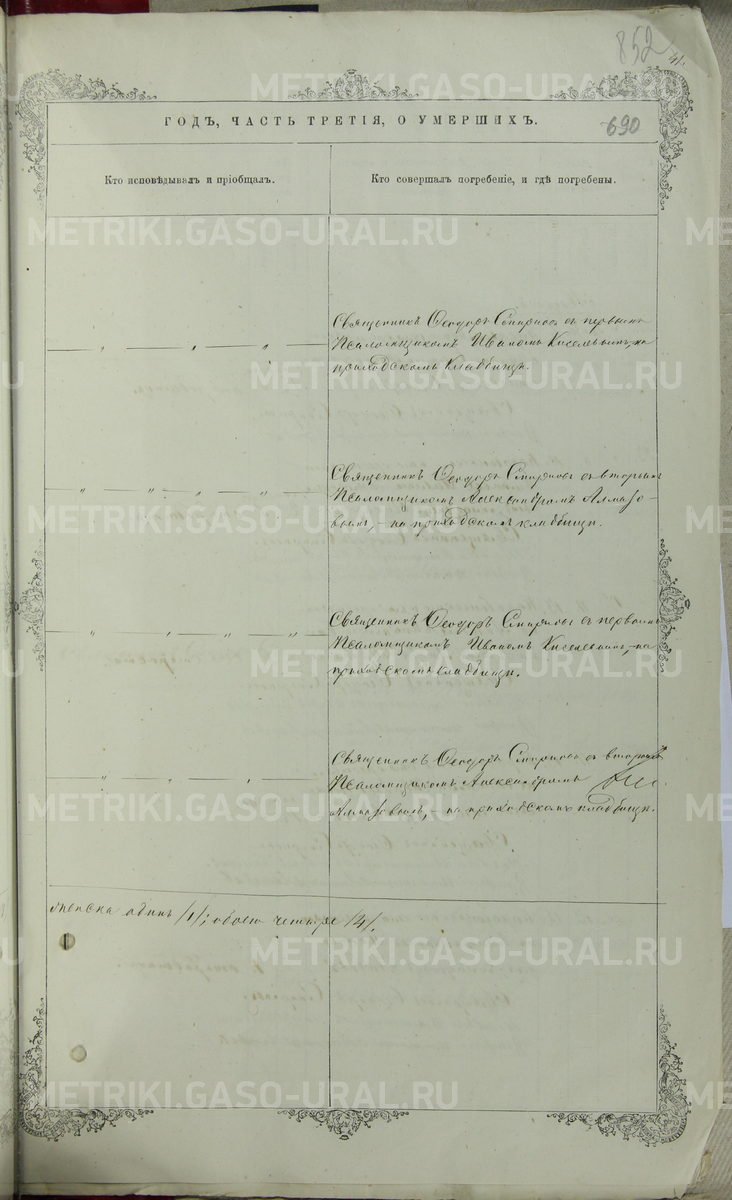 852
690
ГОДЪ, ЧАСТЬ ТРЕТІЯ, О УМЕРШИХЪ.
Кто исповѣдывалъ и пріобщалъ.
Кто совершалъ погребеніе, и гдѣ погребены.
Священникъ Ѳеодоръ Смирновъ съ первымъ
Псаломщикомъ Иваномъ Киселевымъ, на
приходскомъ кладбищѣ.
Священникъ Ѳеодоръ Смирновъ съ вторымъ
Псаломщикомъ Александромъ Алмазо-
вымъ, – на приходскомъ кладбищѣ.
Священникъ Ѳеодоръ Смирновъ съ первымъ
Псаломщикомъ Иваномъ Киселевымъ, – на
приходскомъ кладбищѣ.
Священникъ Ѳеодоръ Смирновъ съ вторымъ
Псаломщикомъ Александромъ
Алмазовымъ, – на приходскомъ кладбищѣ.
женска одинъ /1/; обоего четыре /4/.
METRIKI.GASO-URAL.RU